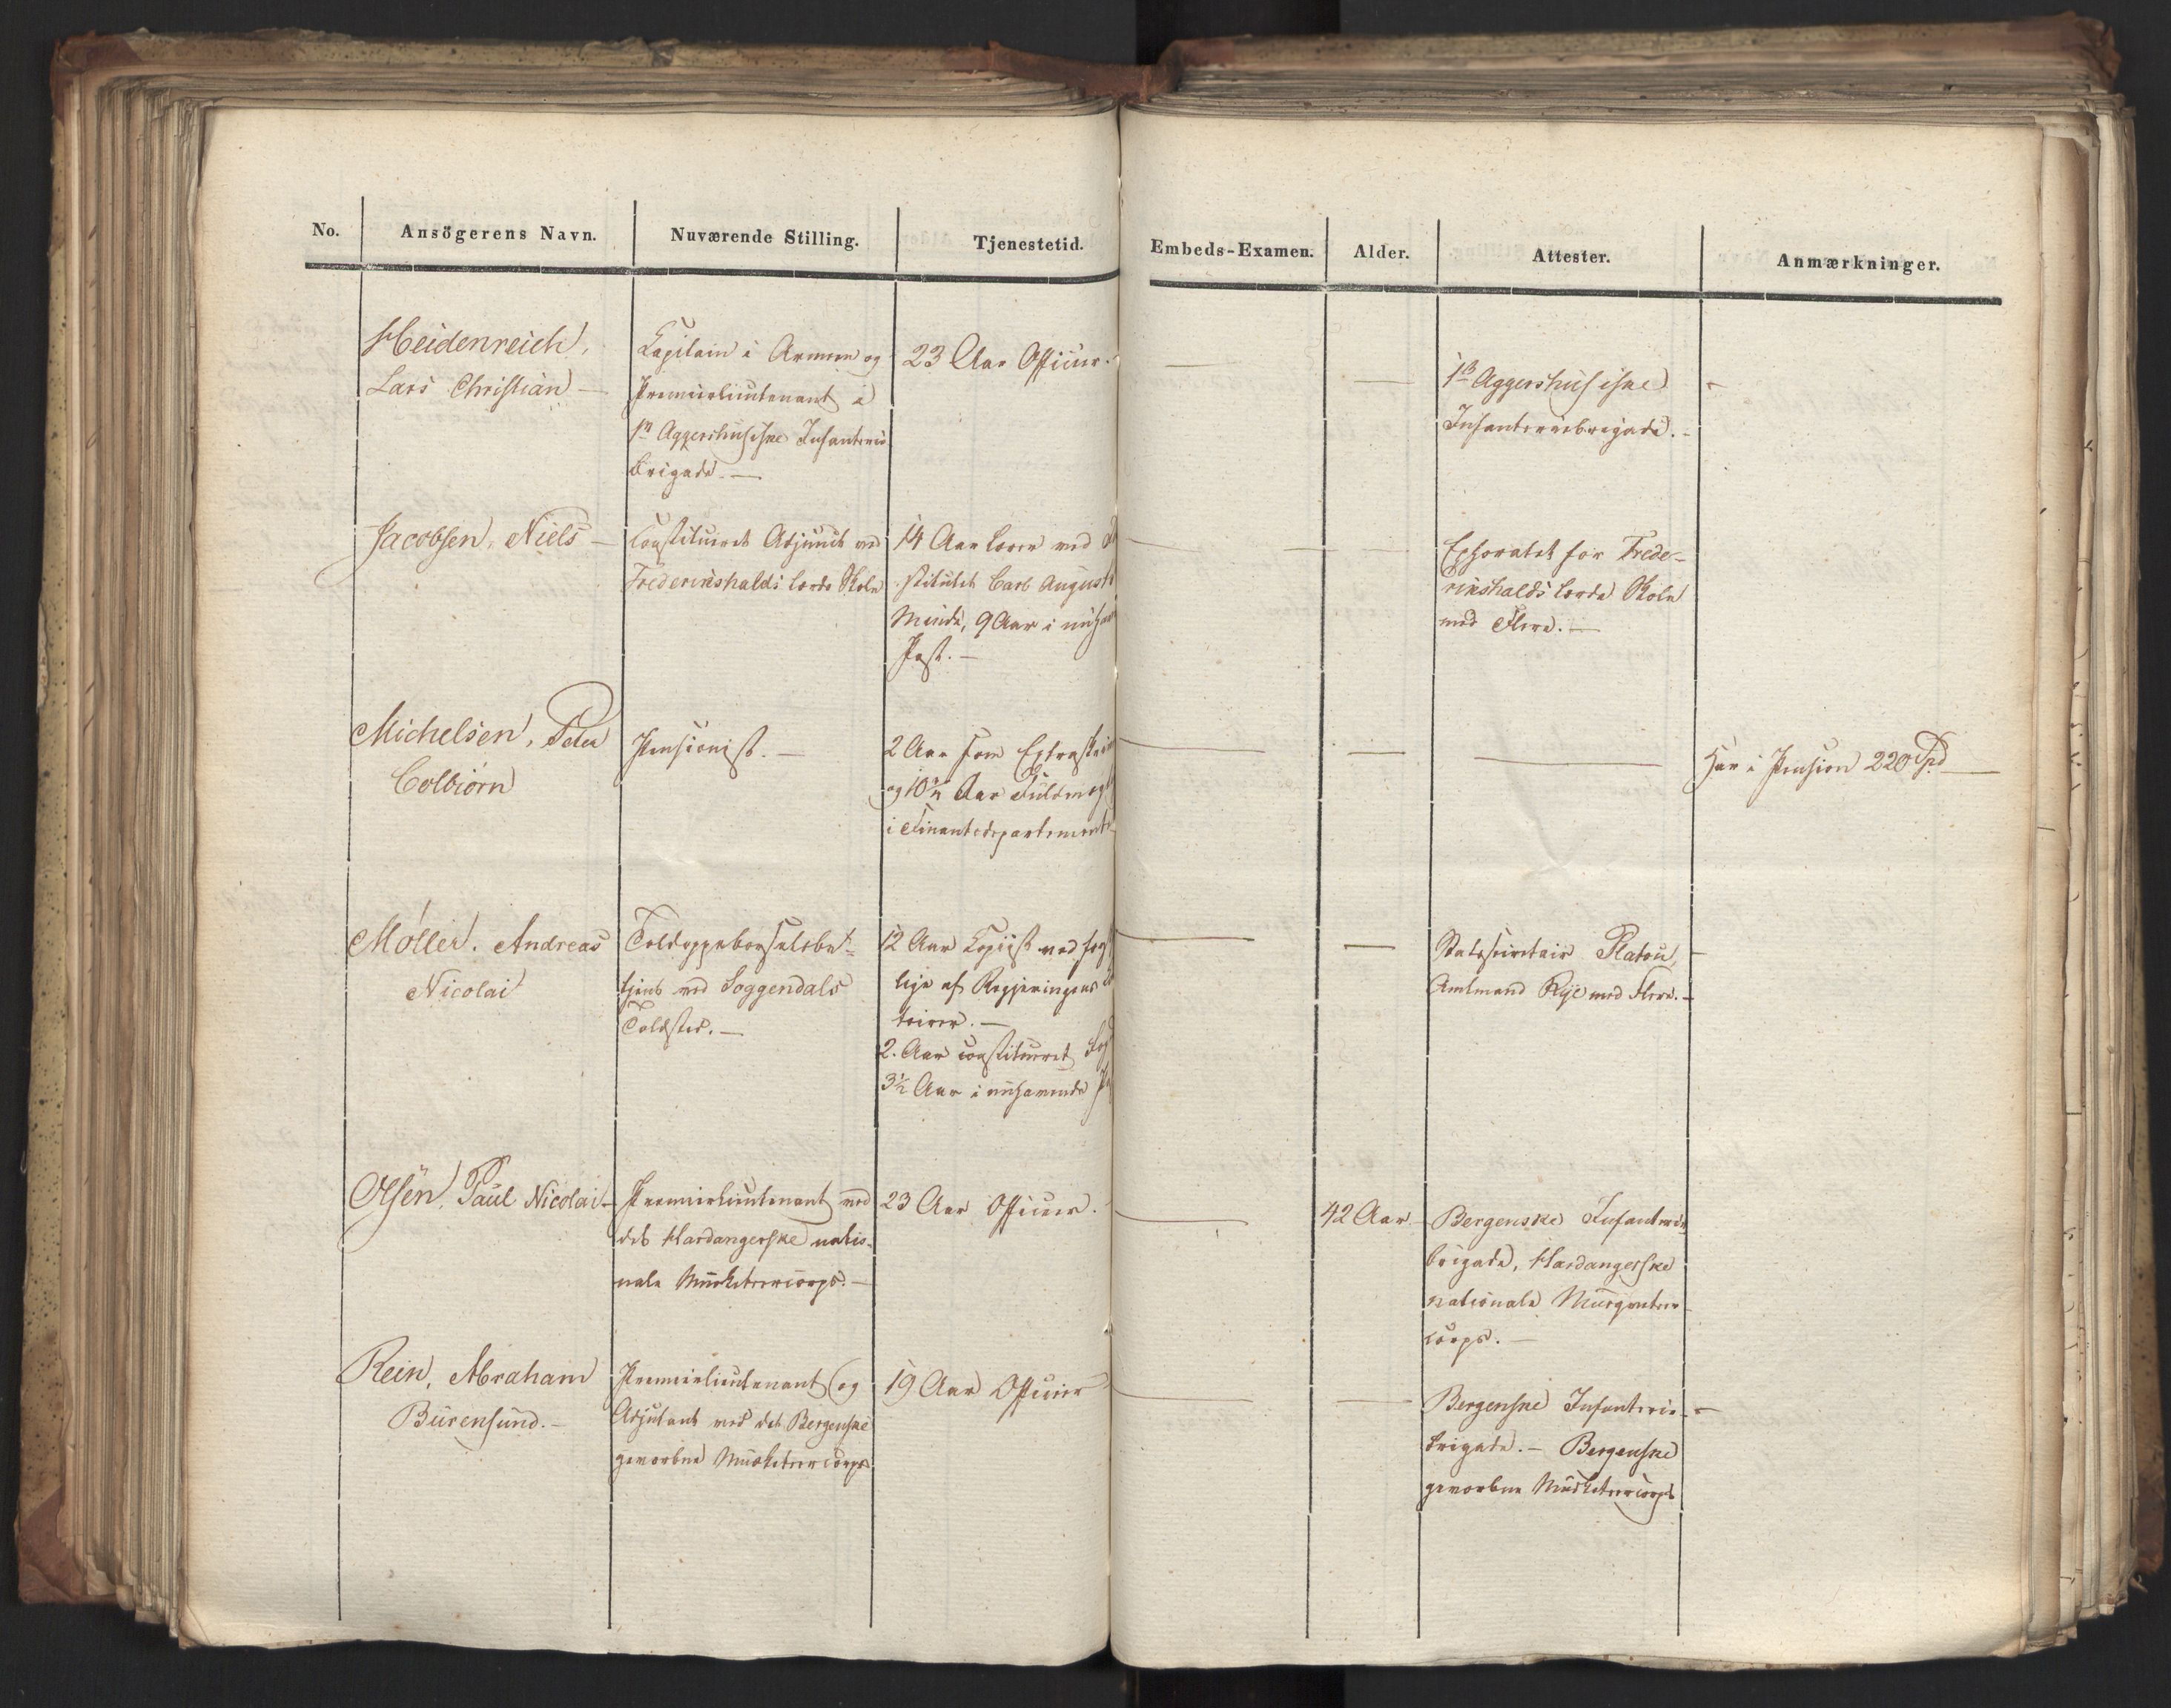 No.
Ansögerens Navn.
Nuværende Stilling.
Tjenestetid.
Embeds-Examen.
Alder.
Attester.
Anmærkninger.
Heidenreich,
Lars Christian —
Capitain i Armeen og
Premierlieutenant i
1ste Aggershusiske Infanterie
brigade. —
23 Aar Officier.
—
—
1ste Aggershusiske
Infanteriebrigade. -
-
Jacobsen, Niels —
constitueret Adjunct ved
Frederikshalds lærde Skole
14 Aar Lærer ved
stitutet Carl August
Minde, 9 Aar i nuhav
Post. —
—
—
Ephoratet for Frede-
rikshalds lærde Skole
med Flere. —
Michelsen, Peter
Colbiørn
Pensionist. —
2 Aar som Extraskriv
og 10 Aar Fuldmægt
i Finantsdepartemente
—
—
—
Har i Pension 220 Spd —
Møller, Andreas
Nicolai
Toldoppebørselsbe-
tjent ved Soggendals
Toldsted. —
12 Aar Copiist ved
lige af Regjeringens
toirer. —
2. Aar constitueret Fog
3½ Aar i nuhavende
—
—
Statssecretair Platou,
Amtmand Rye med Flere. -
Olsen, Paul Nicolai -
Premierlieutenant ved
det Hardangerske natio-
nale Musketeercorps. —
23 Aar Officier.
—
42 Aar
Bergenske Infanterie
brigade, Hardangerske
nationale Musqueteer
corps. —
Rein, Abraham
Bürensund. -
Premierlieutenant og
Adjutant ved det Bergenske
gevorbne Musketeercorps
19 Aar Officier
—
—
Bergenske Infanterie-
brigade. - Bergenske
gevorbne Musketeercorps
-